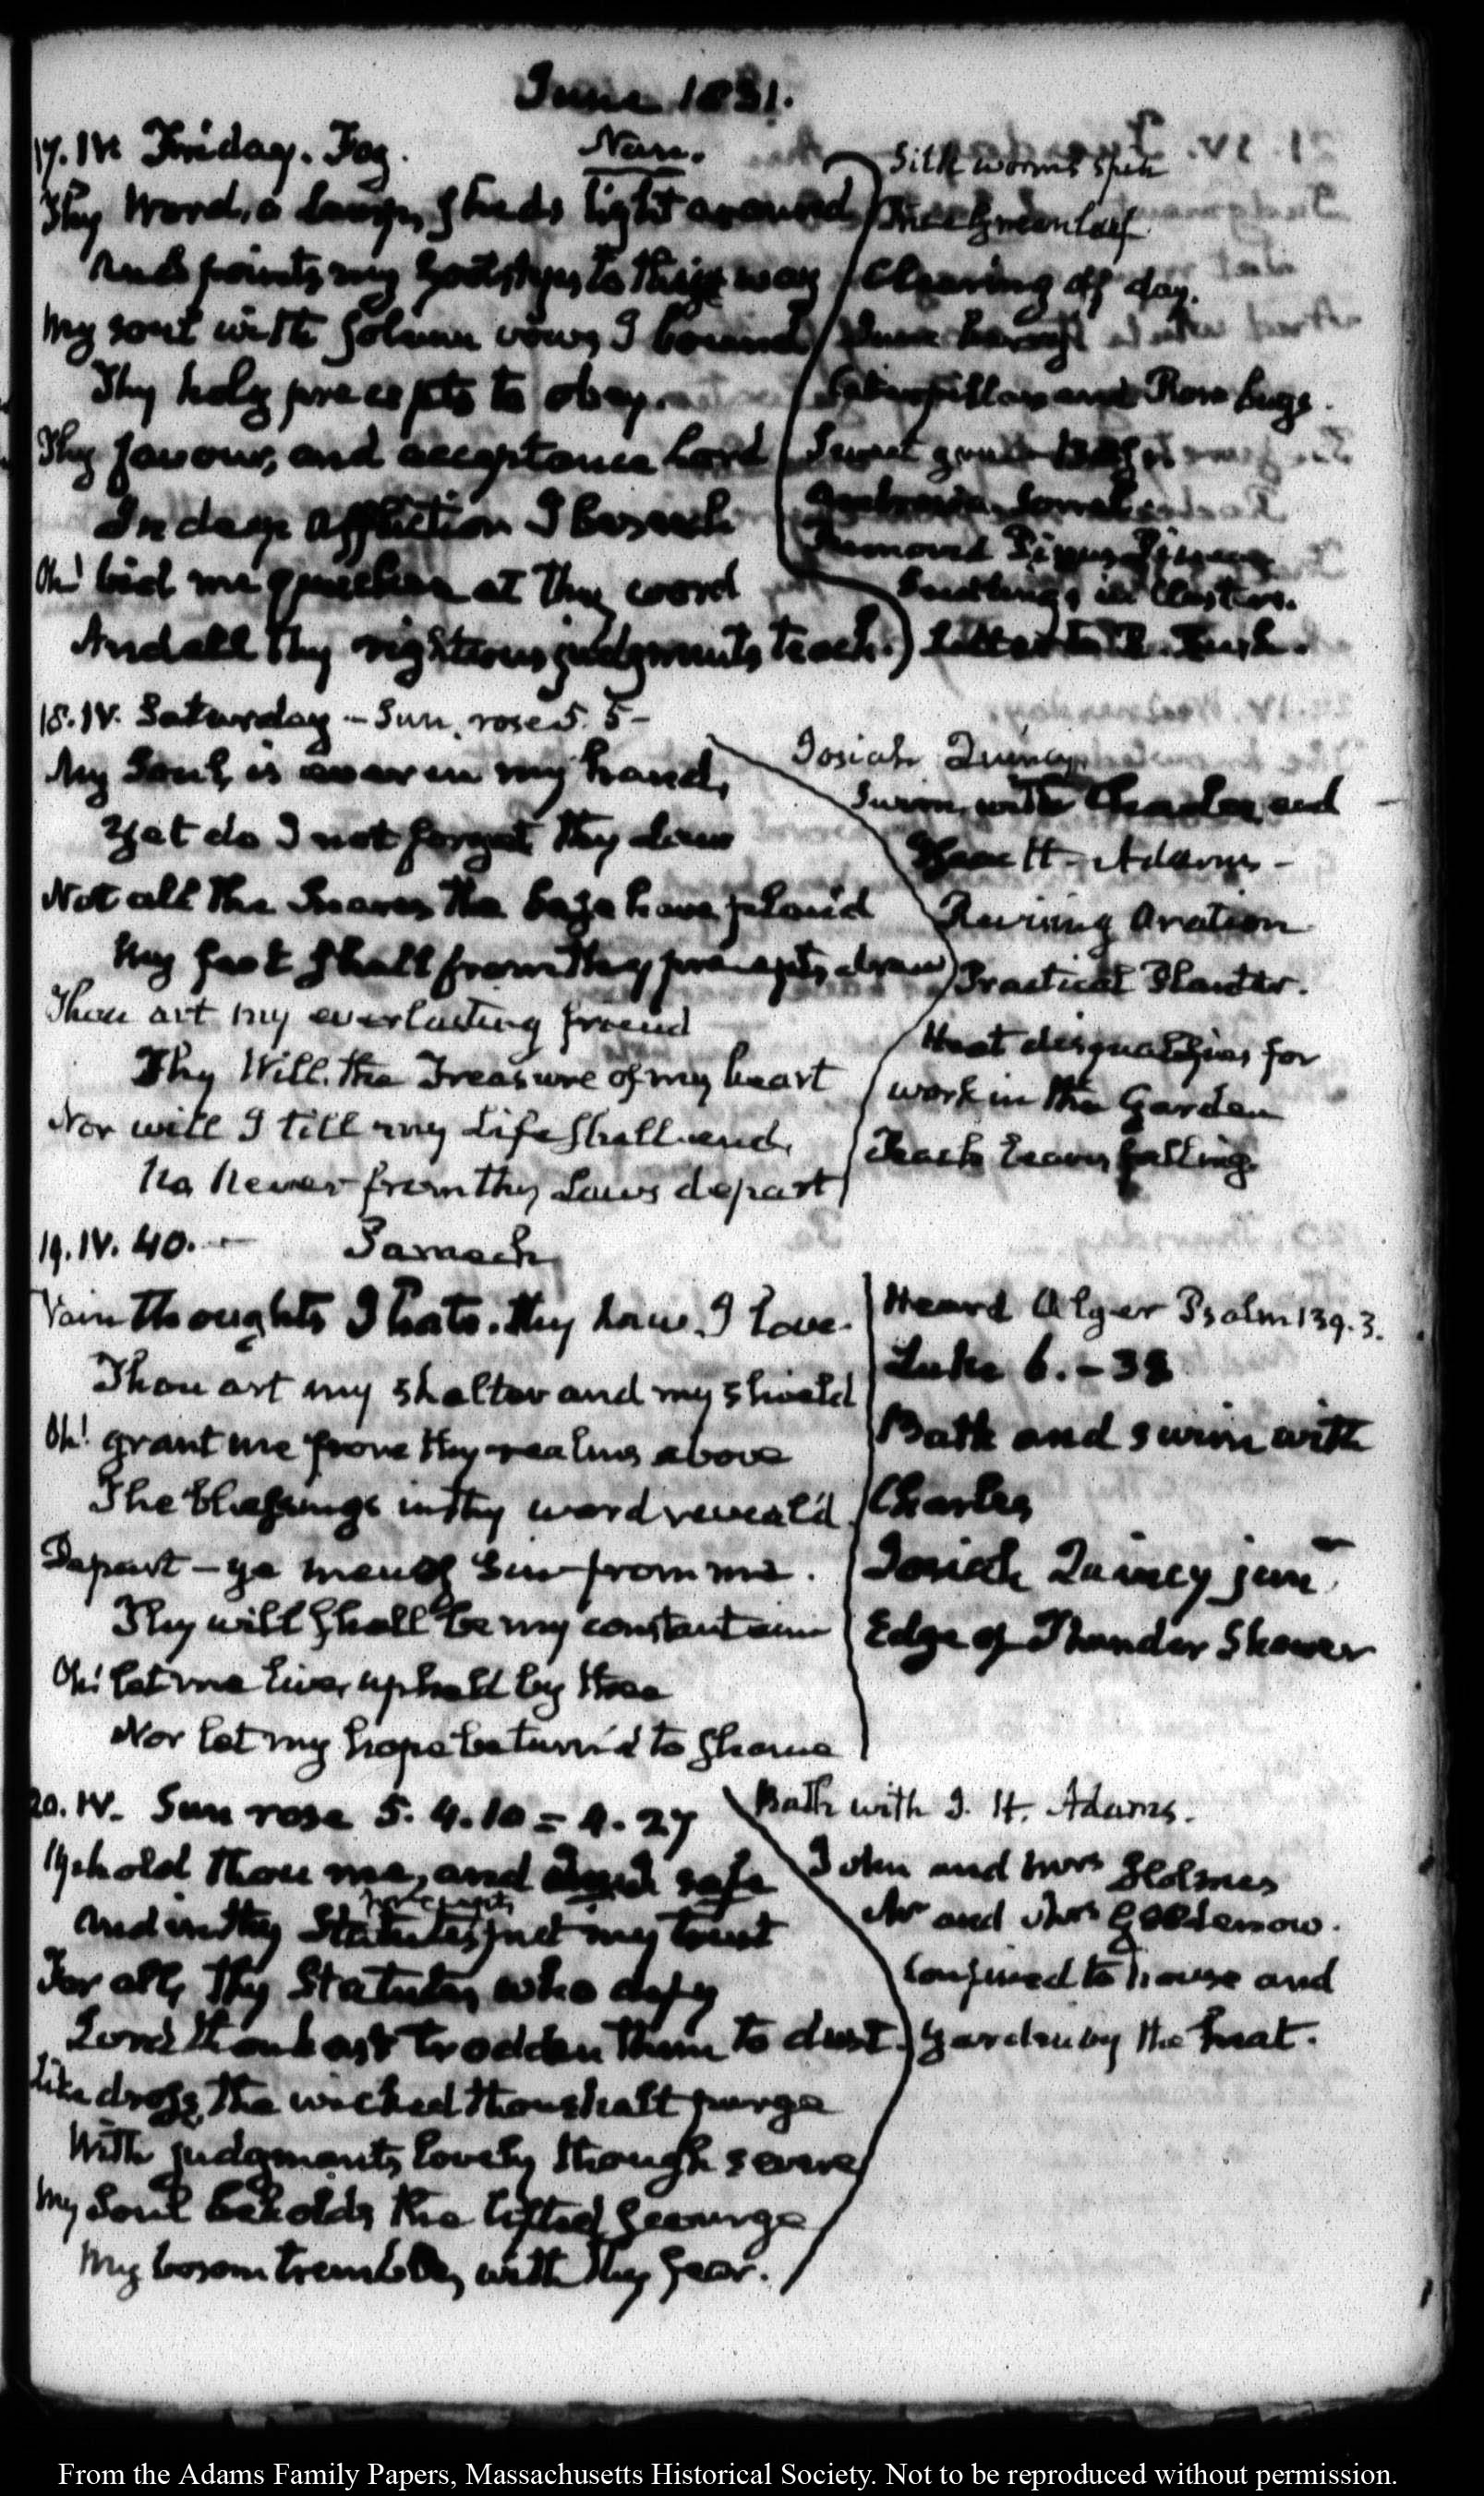 June 1831.
17. IV. Friday. Fog.
Nun.
Thy Word, a Lamp, sheds light around
And points my footsteps to thine way
My soul with solemn vows I bound
Thy holy precepts to obey.
Thy favour, and acceptance Lord
In deep affliction I beseech
Oh! bid me quicken at thy word
And all thy righteous judgments teach.
Silk worms spin
Greenleaf
Clearing off day.
Caterpillars and Rose bugs.
Sweet
Removed
Seedlings in Clusters.
Letter to
18. IV. Saturday – Sun, rose 5. 5 –
My Soul, is ever in my hand,
Yet do I not forget thy Law
Not all the Snares the base have plann'd
My feet shall from thy precepts draw
Thou art my everlasting friend
Thy Will, the Treasure of my heart
Nor will I till my Life shall end,
No Never from thy Laws depart
Josiah Quincy.
Swim, with Charles and
Isaac H. Adams –
Revising Oration
Practical Planter.
Heat disqualifies for
work in the Garden
Peach Leaves falling.
19. IV. 40. –
Samech
Vain thoughts I hate. thy Law, I love.
Thou art my shelter and my shield
Oh! grant me from thy realms above
The blessings in thy word reveal'd.
Depart – ye men of Sin from me.
Thy will shall be my constant aim
Oh! let me live, upheld by thee
Nor let my hope be turn'd to shame
Heard Alger Psalm 139. 3.
Luke 6. – 38
Bath and swim with
Charles
Josiah Quincy junr
Edge of Thunder Shower
20. IV. Sun rose 5. 4. 10 = 4. 27
Uphold thou me, and safe
precepts
And in thy Statutes put my trust
For all, thy Statutes, who defy
Lord thou hast trodden them to dust.
Like dross, the wicked thou shalt purge
With judgments, lovely though severe
My Soul beholds the lifted Scourge
My bosom trembles, with thy fear.
Bath with I. H. Adams.
John and Mrs Holmes
Mr and Mrs Goodenow.
Confined to house and
Garden by the heat.
From the Adams Family Papers, Massachusetts Historical Society. Not to be reproduced without permission.